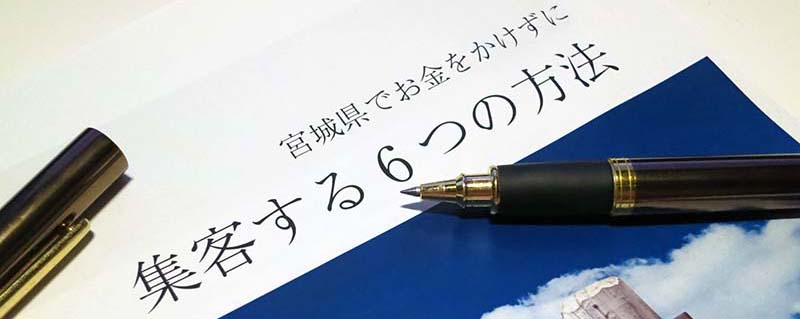 宮城県でお金をかけずに
集客する6つの方法